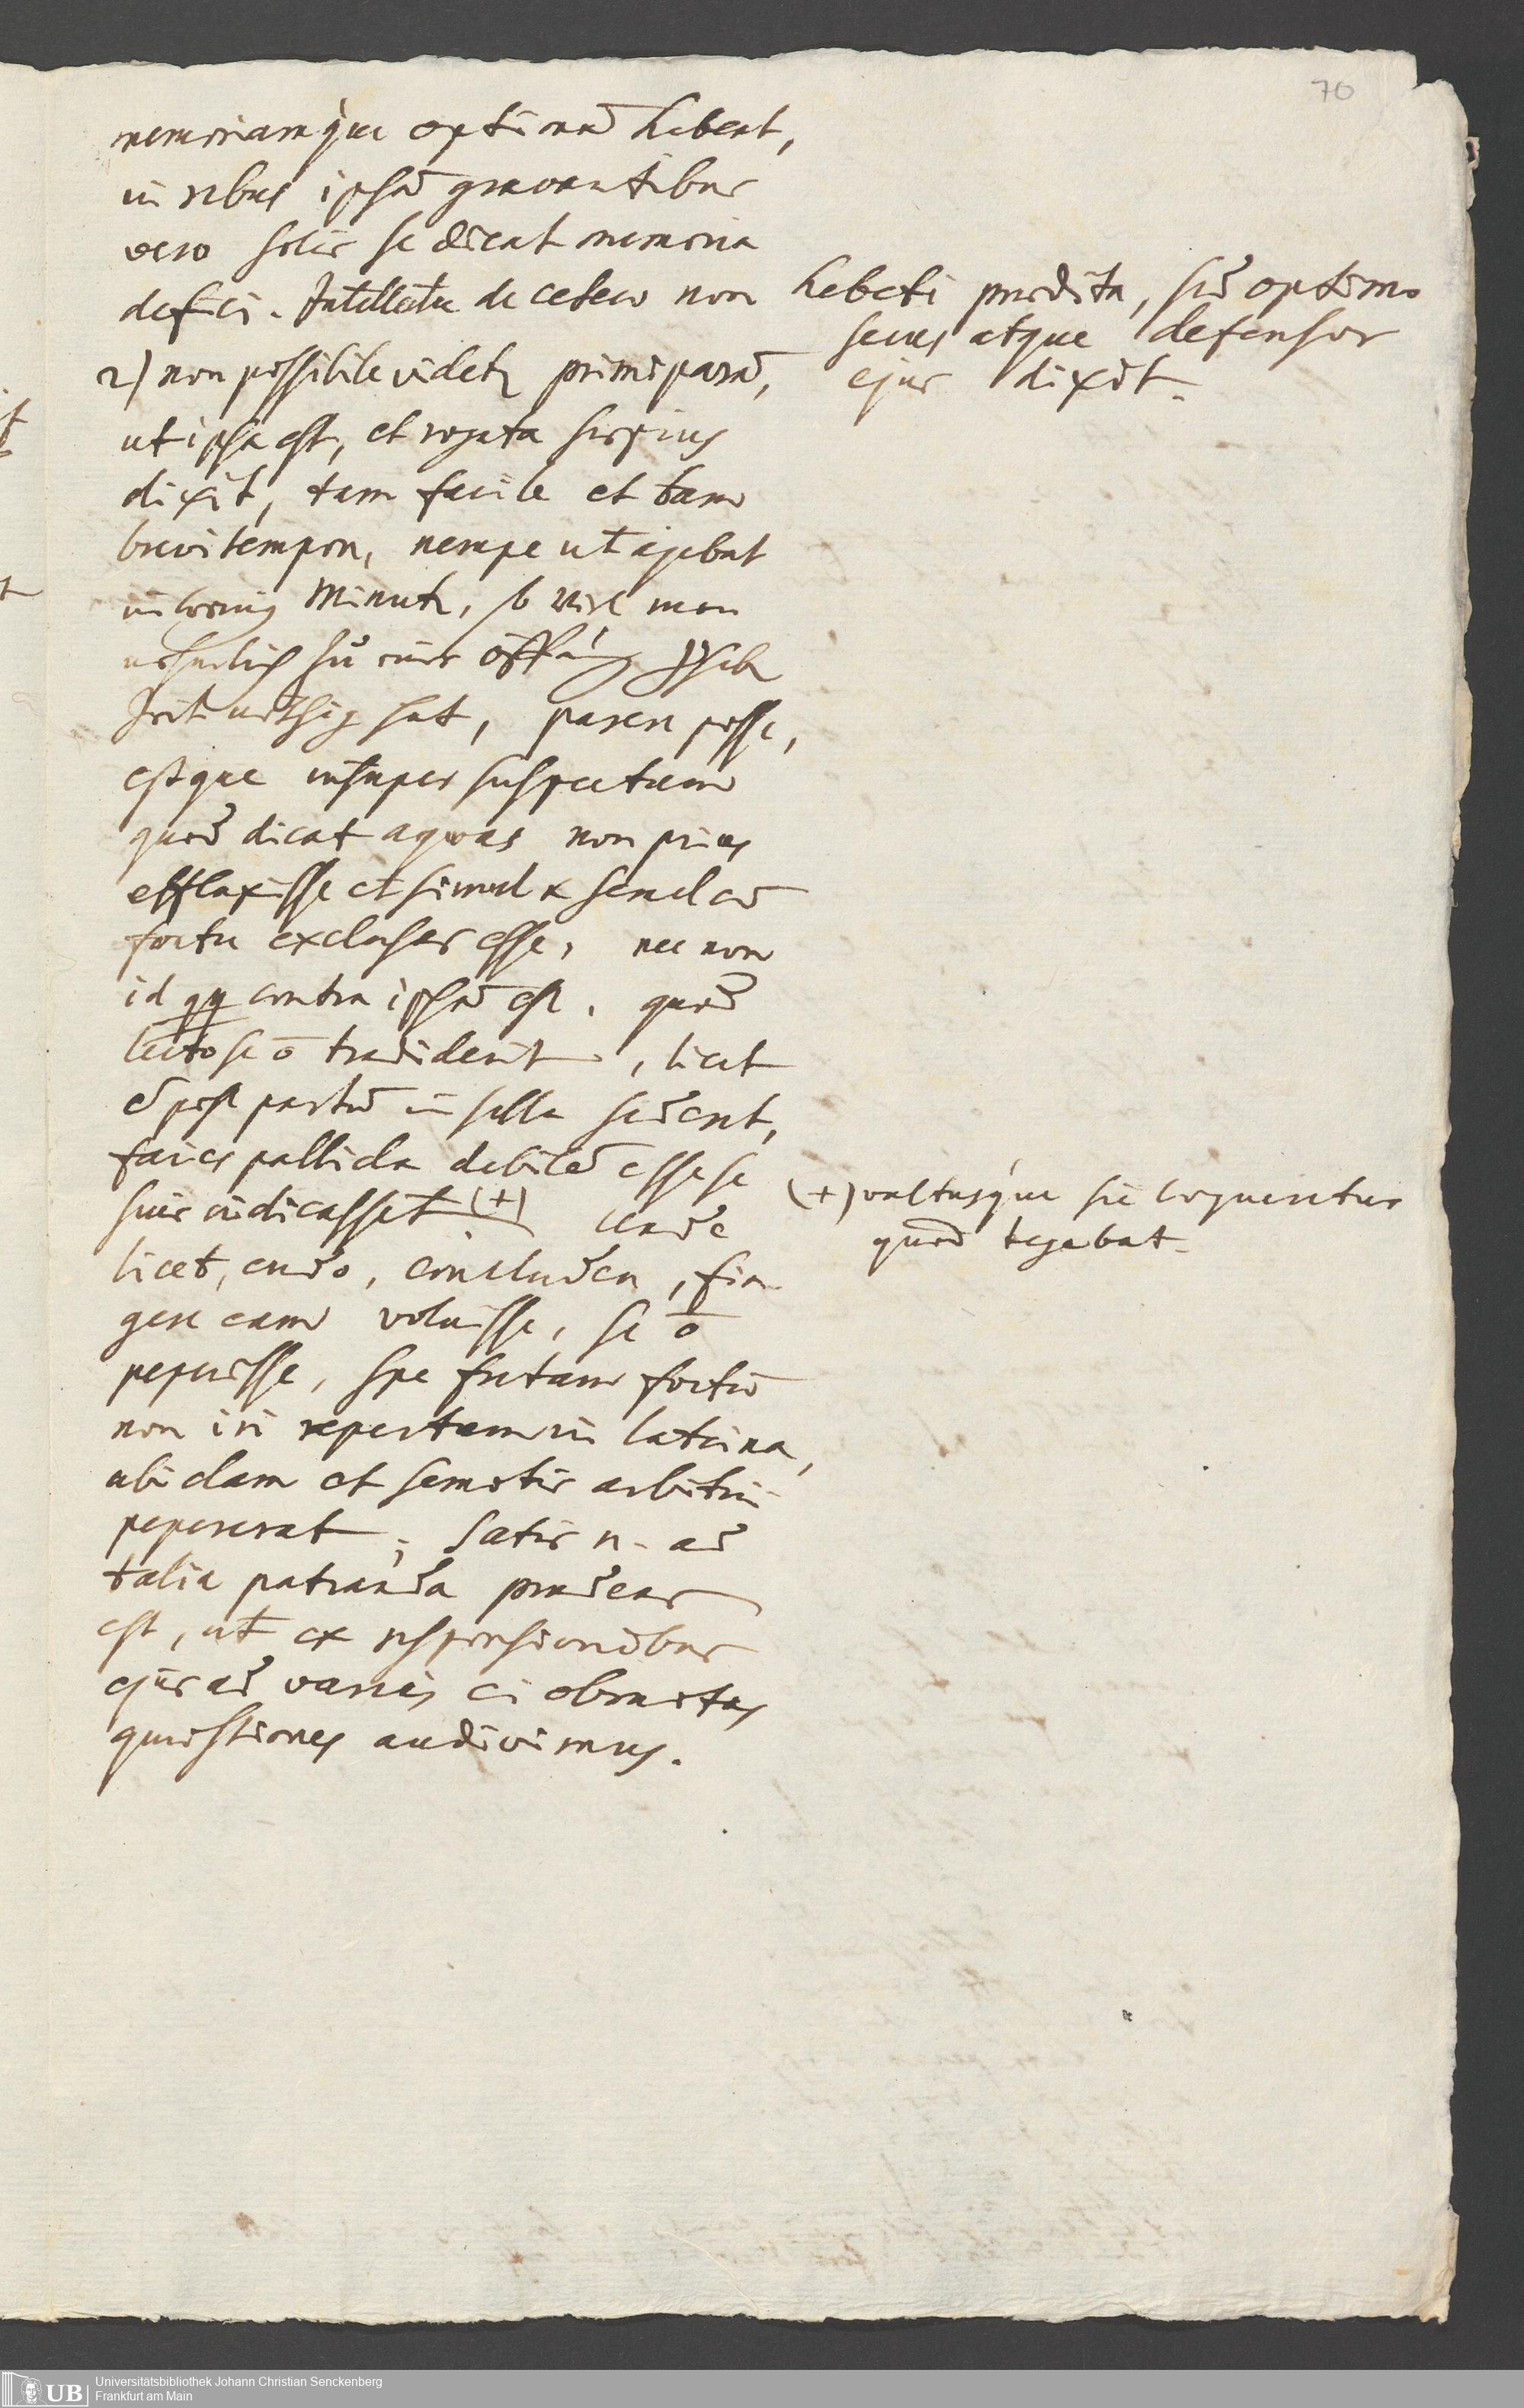 70
memoriamque optimã habeat,
in rebus ipsã gravantibus
vero solis se dicat memoria
defici. Intellectu de cetero non hebeti prædita, sed optimo
secus atque defensor
ejus dixit.
2) non possibile videtr primiparã,
ut ipsa est, et rogata sæpius
dixit, tam facile et tam
brevi tempore, nempe ut ajebat
in wenig Minuten, so viel man
nehmlich zu einer öffnung
Zeit nöthig hat, parere posse,
estque insuper suspectum
quod dicat aquas non prius
effluxisse et simul & semel cũ
foetu exclusas esse, nec non
id qq contra ipsã est, quod
lecto se õ tradiderit, licet
post partũ in sella sederit,
facies pallida debilẽ esse se
suis indicasset (+) unde
(+) vultusque sic loqueretur
quod tegebat.
licet, credo, concludere, fin-
gere eam voluisse, se õ
peperisse, spe fretam foetũ
non iri repertum in latrina,
ubi clam et semotis arbitris
pepererat; satis n. ad
talia patranda prudens
est, ut ex responsionibus
ejus ad varias ei obmotas
quæstiones audivimus.
Universitätsbibliothek Johann Christian Senckenberg
Frankfurt am Main
UB